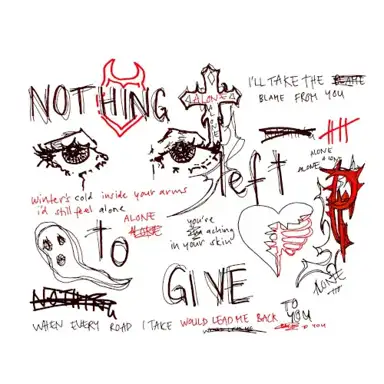 NOTHING
ALONE
ALONE
I'LL TAKE THE BLAME
BLAME FROM YOU
left
ALONE
winter's cold inside your arms
i'd still feel alone
ALONE
you're
aching
in your skin
TO
GIVE
NOTHING
ALONE
TO
YOU
WHEN EVERY ROAD I TAKE WOULD LEAD ME BACK
TO YOU